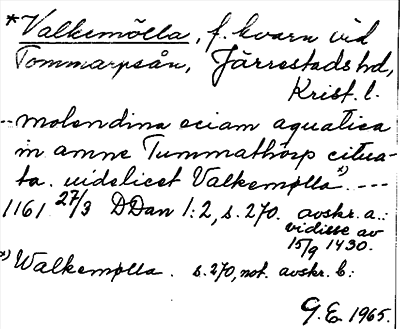 *Valkemölla, f. kvarn vid
Tommarpsån, Järrestads hd,
Krist. l.
--- molendina eciam aquatica
in amne Tummathorp citua-
ta. uidelicet Valkemølla x) ---
1161 27/3 DDan 1:2, s. 270. avskr. a.:
vidisse av
15/9 1430.
x) Walkemølla. s. 270, not. avskr. b:
G.E. 1965.